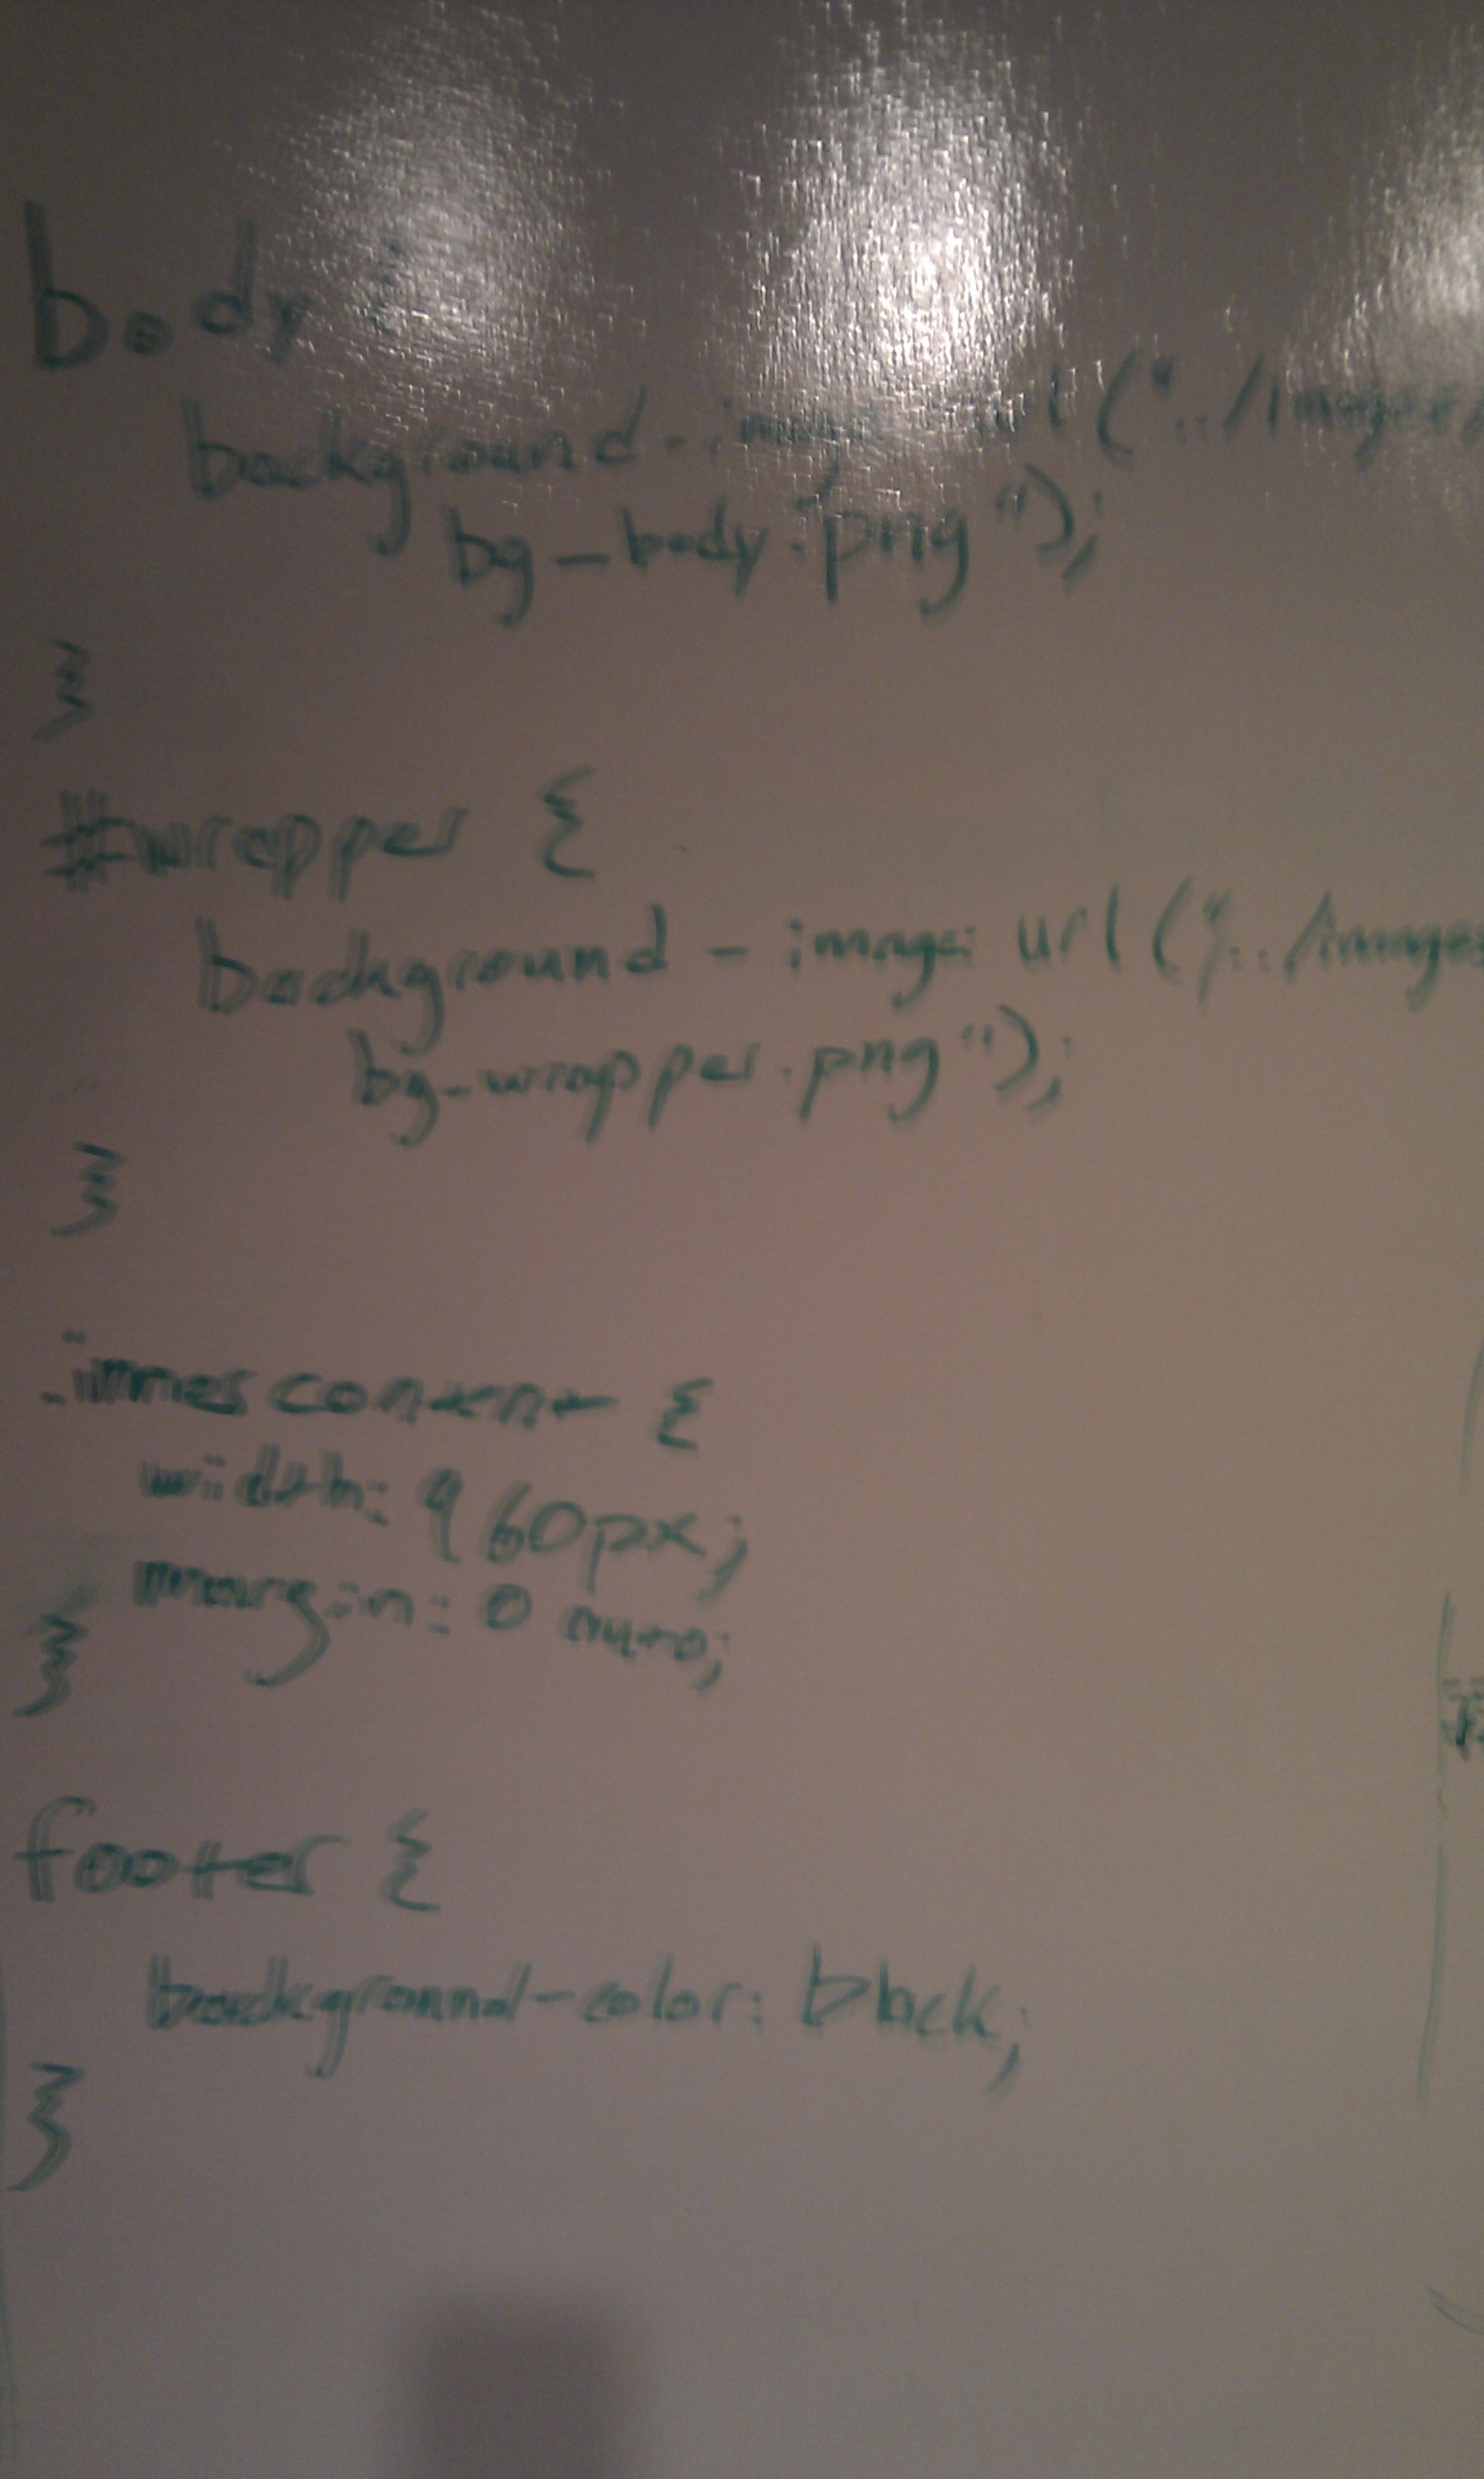 body {
background-image: url("../images/
bg-body.png");
}
#wrapper {
background-image: url("../images
bg-wrapper.png");
}
.innercontent {
width: 960px;
margin: 0 auto;
}
footer {
background-color: black;
}